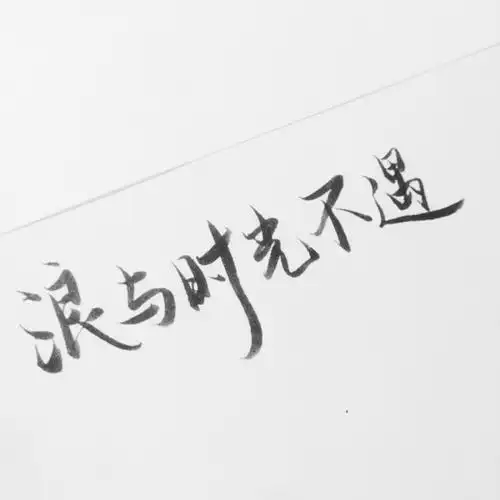 浪与时光不遇